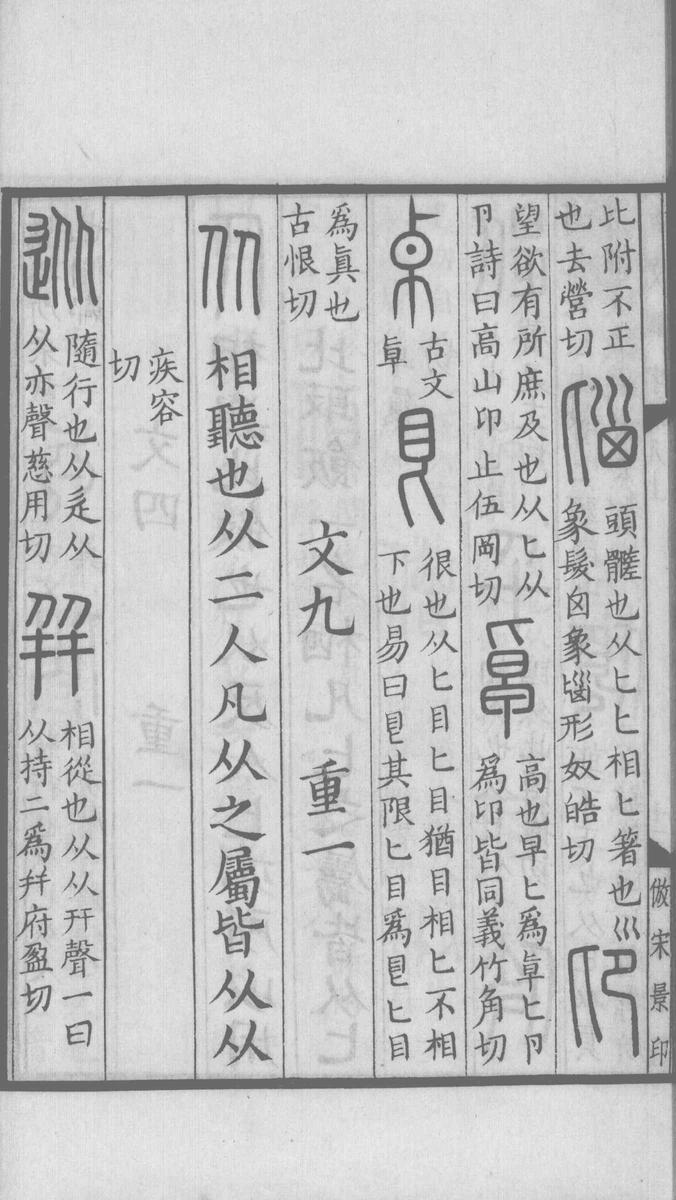 倣宋景印
比附不正
也去營切
匘
頭髓也从匕匕相匕著也巛
象髮囟象匘形奴皓切
卬
望欲有所庶及也从匕从
卪詩曰高山卬止伍岡切
卓
高也早匕爲卓匕卪
爲卬皆同義竹角切
古文
卓
艮
很也从匕目匕目猶目相匕不相
下也易曰艮其限匕目爲艮匕目
爲眞也
古恨切
文九 重一
从 相聽也从二人凡从之屬皆从从
疾容
切
從
隨行也从辵从
从亦聲慈用切
幷
相從也从从幵聲一曰
从持二爲幷府盈切